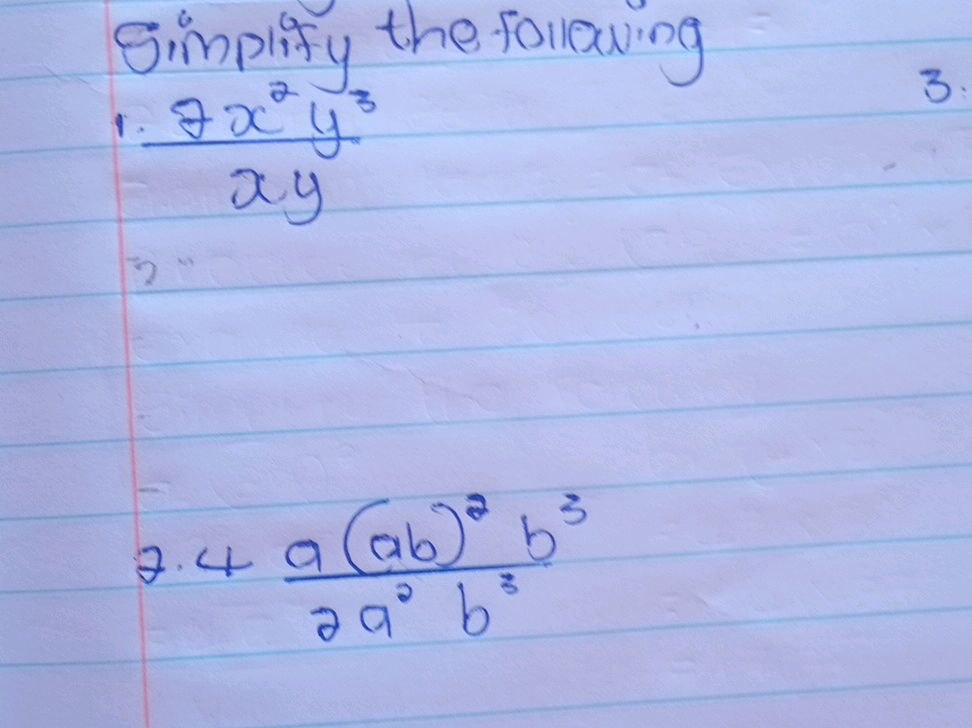 Simplify the following
1. 2x²y³
xy
3.
2. 4 a(ab)² b³
2a² b³